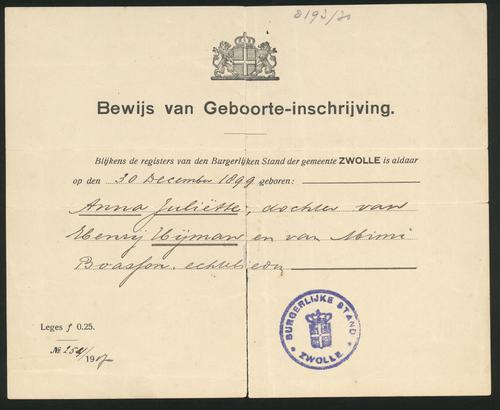 8193/20
Bewijs van Geboorte-inschrijving.
Blijkens de registers van den Burgerlijken Stand der gemeente ZWOLLE is aldaar
op den 30 December 1899 geboren:
Anna Juliëtte, dochter van
Henrij Hijman en van Mimi
Boasson, echtelieden
Leges f 0.25.
№ 252/1917
BURGERLIJKE STAND
ZWOLLE